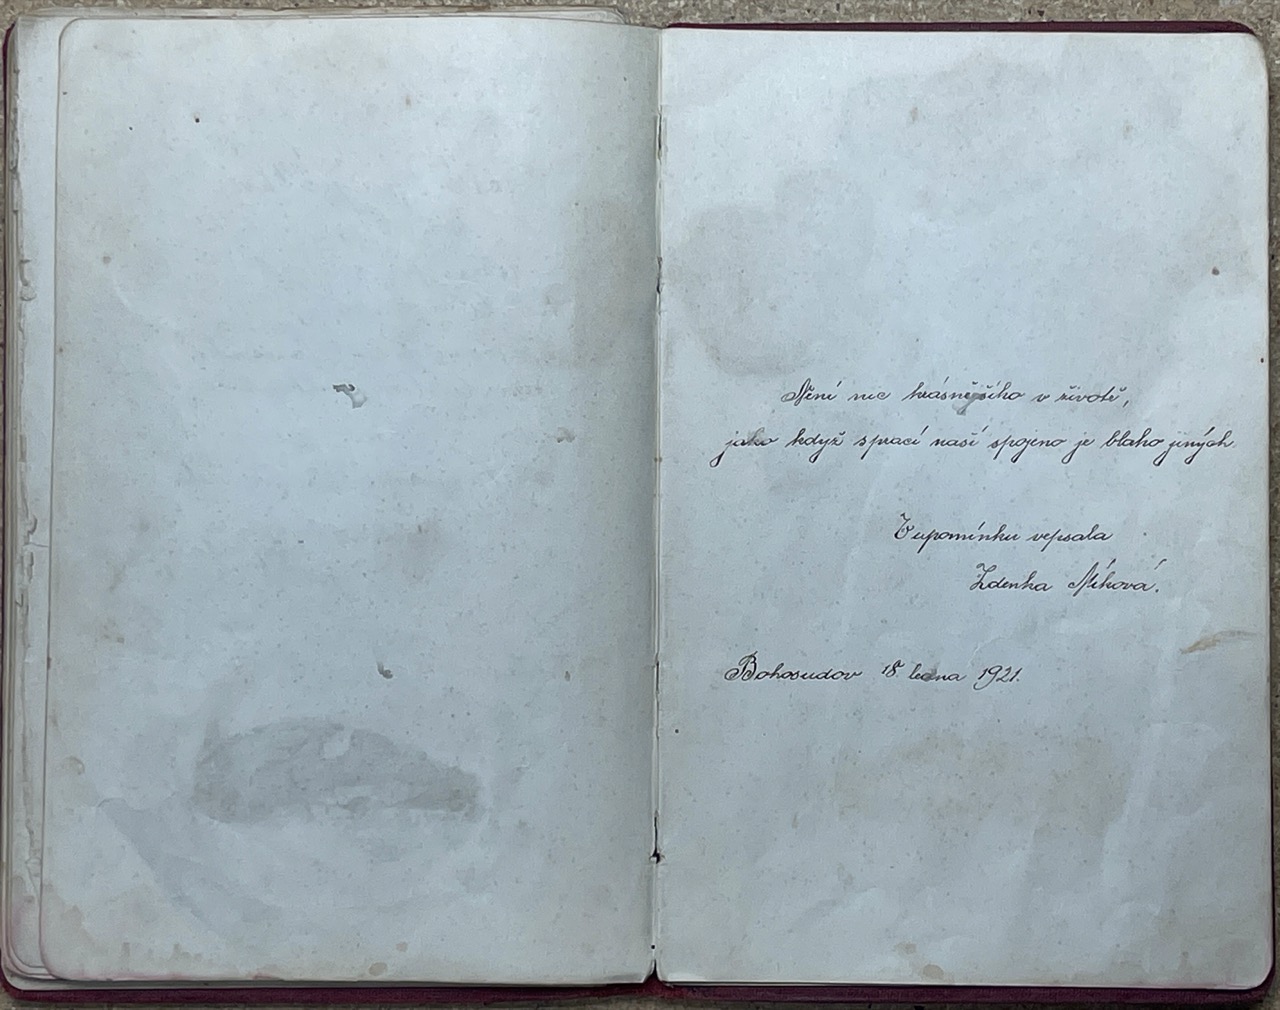 Není nic krásnějšího v životě,
jako když s prací naší spojeno je blaho jiných.
V upomínku vepsala
Zdenka Níková.
Bohosudov 18. ledna 1921.